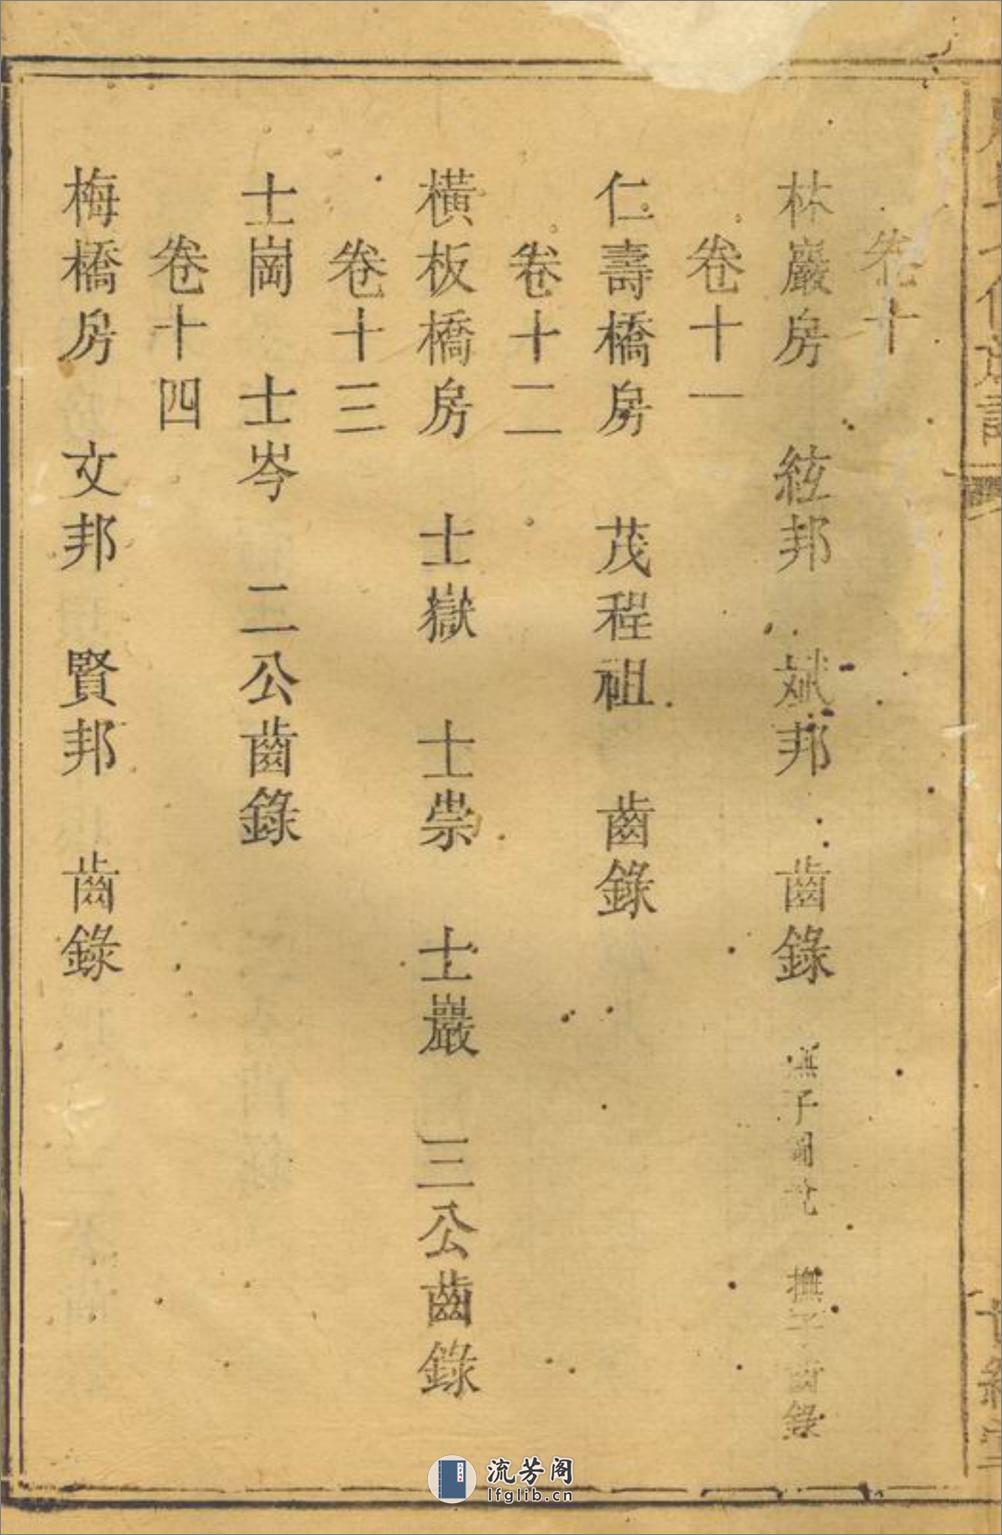 卷十
林巖房　紘邦　斌邦　齒錄　撫子齒錄
卷十一
仁壽橋房　茂程祖　齒錄
卷十二
橫板橋房　士嶽　士崇　士巖　三公齒錄
卷十三
士崗　士岑　二公齒錄
卷十四
梅橋房　文邦　賢邦　齒錄
流芳阁
lfglib.cn